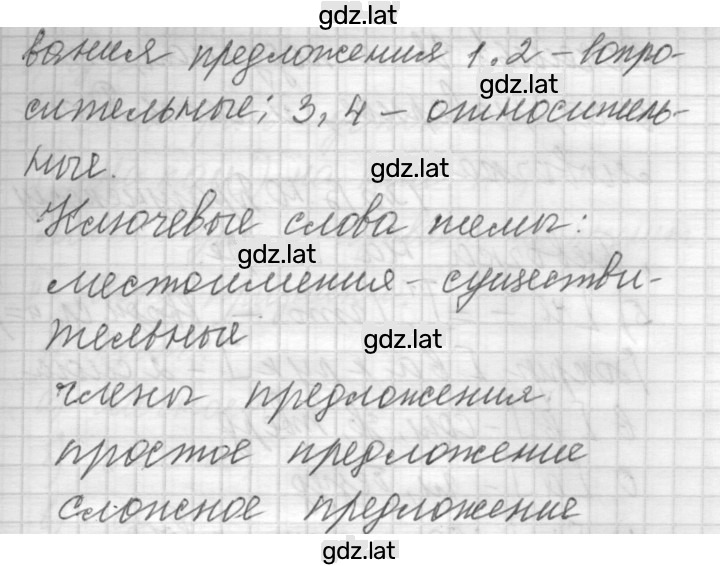 gdz.lat
вания предложения 1.2 – вопро-
gdz.lat
сительные; 3, 4 – относитель-
ные.
gdz.lat
Ключевые слова темы:
gdz.lat
местоимения – существи-
тельные
gdz.lat
члены предложения
простое предложение
сложное предложение
gdz.lat